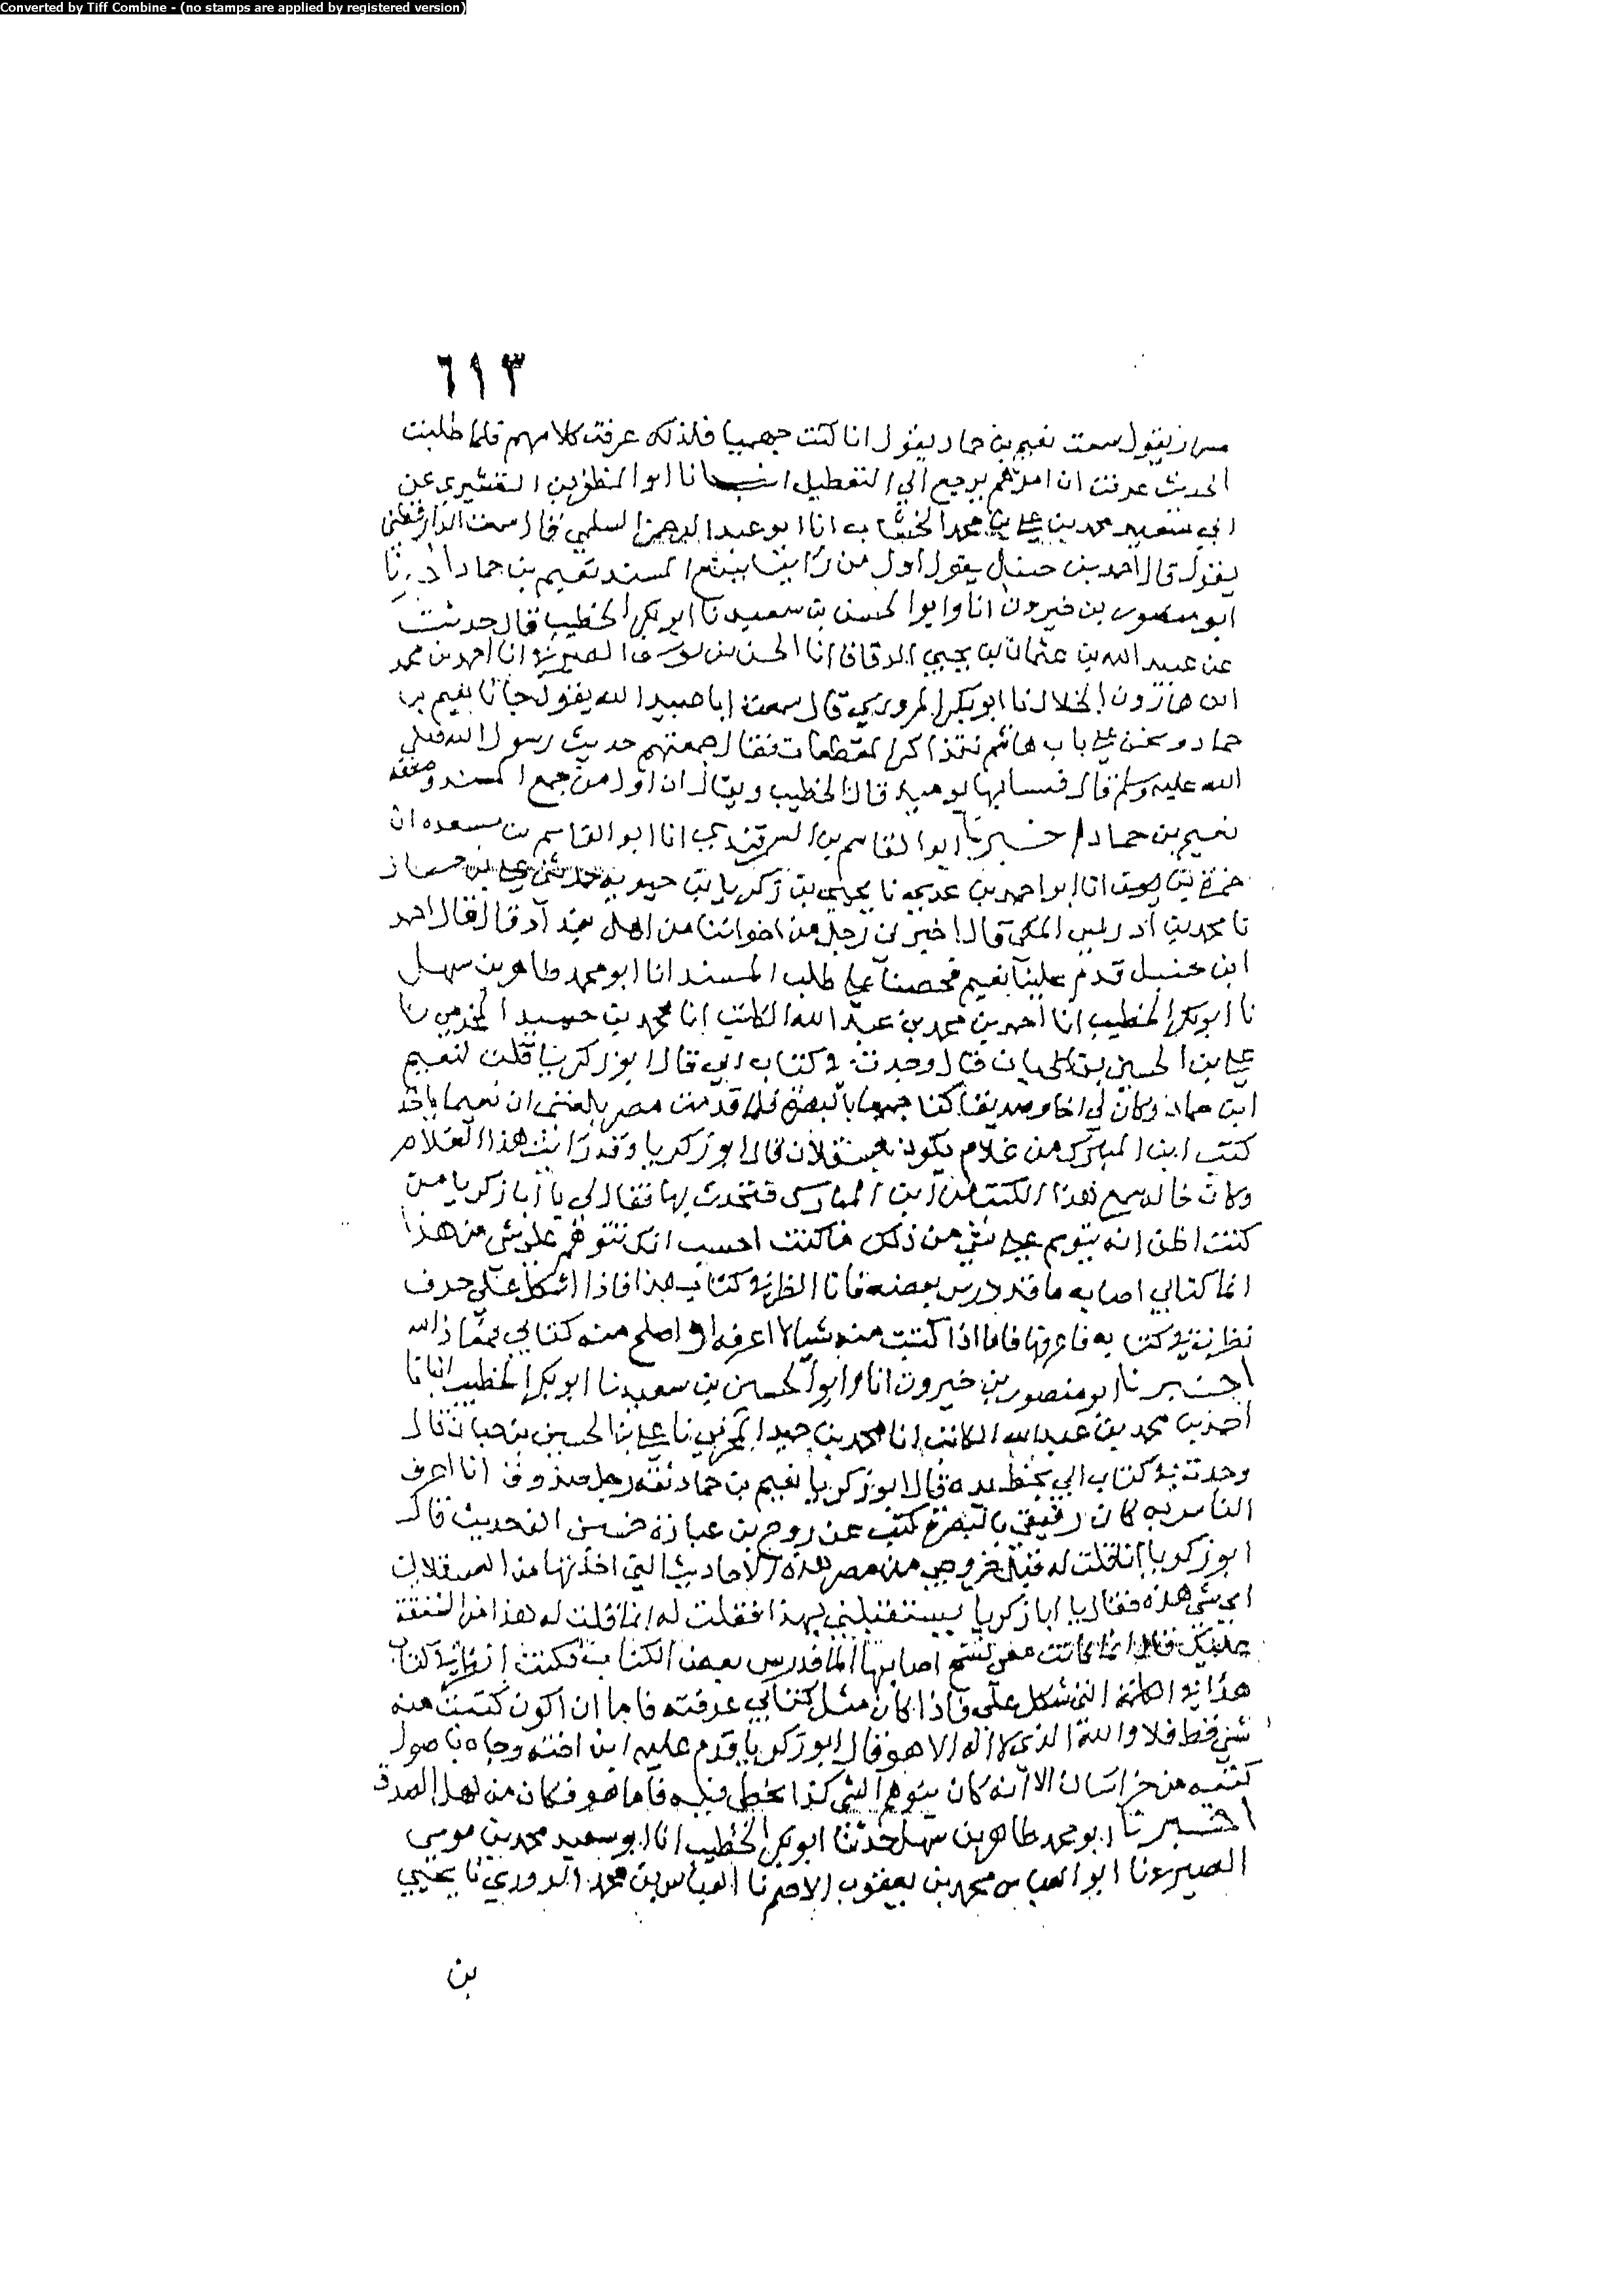 Converted by Tiff Combine - (no stamps are applied by registered version)
٦١٣
يقول سمعت نعيم بن حماد يقول انا كنت جهميا فلذلك عرفت كلامهم فلما طلبت
الحديث عرفت ان امرهم يرجع الي التعطيل انبانا ابو المظفر بن القشيري عن
ابي سعيد محمد بن علي بن محمد الخشاب انا ابو عبد الرحمن السلمي قال سمعت الدارقطني
يقول قال احمد بن حنبل يقول اول من رايناه المسند نعيم بن حماد
ابو منصور بن خيرون انا وابو الحسن بن سعيد نا ابو بكر الخطيب قال حدثت
عن عبيد الله بن عثمان بن يحيي الدقاق انا الحسن بن يوسف الصيرفي انا احمد بن محمد
ابن هارون الخلال نا ابو بكر المروزي قال سمعت ابا عبد الله يقول جانا نعيم بن
حماد ونحن علي باب هاشم نتذاكر المقطعات فقال جمعتم حديث رسول الله صلي
الله عليه وسلم قال فعنينا بها يوميذ قال الخطيب ويقال ان اول من جمع المسند وصنفه
نعيم بن حماد اخبرنا ابو القاسم بن السمرقندي انا ابو القاسم بن مسعده انا
حمزة بن يوسف انا ابو احمد بن عدي نا يحيي بن زكريا بن حيويه حدثني
نا محمد بن ادريس المكي قال اخبرني رجل من اخواننا من اهل بغداد قال قال احمد
ابن حنبل قدم علينا نعيم فحصنا علي طلب المسند انا ابو محمد طاهر بن سهل
نا ابو بكر الخطيب انا احمد بن محمد بن عبد الله الكاتب انا محمد بن حميد المخرمي نا
علي بن الحسين بن حبان قال وجدت في كتاب ابي قال ابو زكريا قلت لنعيم
ابن حماد وكان لي اخا وصديقا كنا جميعا بالبصرة فلما قدمت مصر بلغني ان نعيما ياخذ
كتب ابن المبارك من غلام يكون بعسقلان قال ابو زكريا وقد رايت هذا الغلام
وكان خاله سمع هذا الكتب من ابن المبارك فتحدث بها فقال لي يا ابا زكريا من
كنت اظن انه يتوهم علي شي من ذلك فاكنت احسب انك تتوهم علي شي من هذا
انما كتابي اصابه ما فدرس بعضه فانا انظر في كتاب هذا فاذا اشكل علي حرف
نظرت في كتابه فاعرفها فاما اذا كتبت منه شيا لا اعرفه او اصلح منه كتابي فمعاذ الله
اخبرنا ابو منصور بن خيرون انا وابو الحسن بن سعيد نا ابو بكر الخطيب انبانا
احمد بن محمد بن عبد الله الكاتب انا محمد بن حميد المخرمي نا علي بن الحسين بن حبان قال
وجدت في كتاب ابي بخط يده قال ابو زكريا نعيم بن حماد ثقة رجل صدوق انا اعرف
الناس به كان رفيقي بالبصرة كتب عن روح بن عبادة خمسين الف حديث قال
ابو زكريا انا قلت له قبل خروجي من مصر هذه الاحاديث التي اخذتها من العسقلاني
اي شي هذه فقال يا ابا زكريا يستقبلني بهذا فقلت له انما قلت له هذا من الشفقة
عليك قال انما كانت معي نسخ اصابها الما فدرس بعض الكتاب فكنت انظر في كتاب
هذا في الكلمة التي تشكل علي فاذا كان مثل كتابي عرفته فاما ان اكون كتبت منه
شي قط فلا والله الذي لا اله الا هو قال ابو زكريا قدم عليه ابن اخته وجاه باصول
كتبه من خراسان الا انه كان يتوهم الشي كذا يخطي فيه فاما هو فكان من اهل الصدق
اخبرنا ابو محمد طاهر بن سهل حدثنا ابو بكر الخطيب انا ابو سعيد محمد بن موسي
الصيرفي نا ابو العباس محمد بن يعقوب الاصم نا العباس بن محمد الدوري نا يحيي
بن